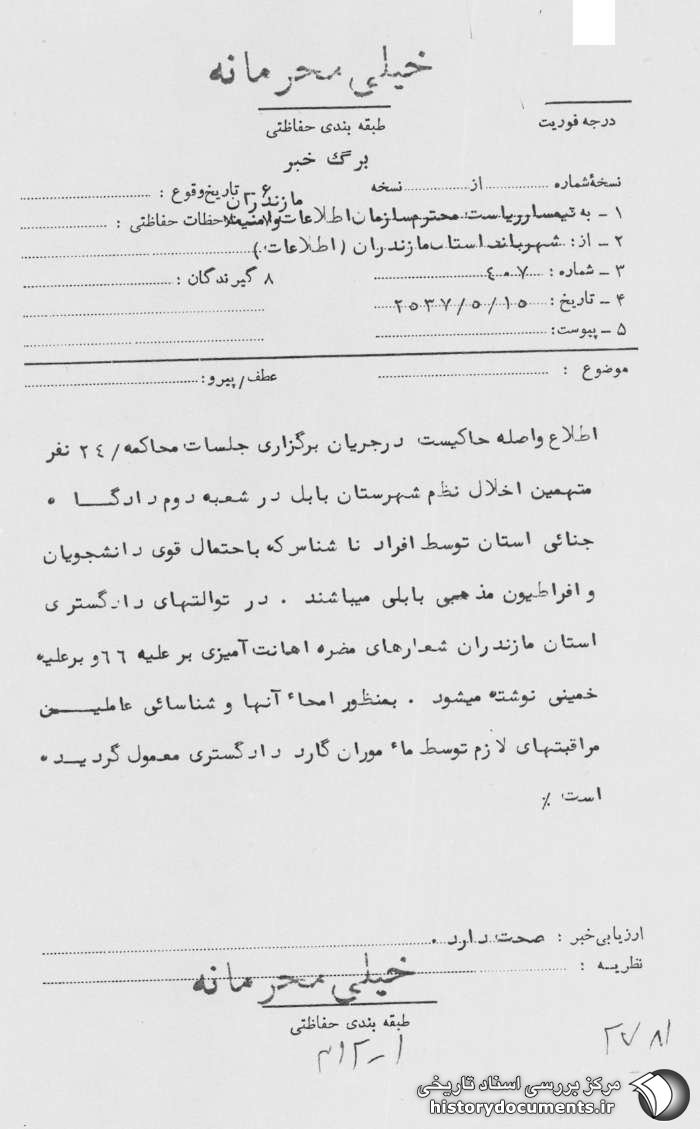 خیلی محرمانه
طبقه بندی حفاظتی
درجه فوریت
برگ خبر
نسخهٔ شماره ........ از ........ نسخه
۶ ـ تاریخ وقوع :
مازندران
۱ ـ به تیمسار ریاست محترم سازمان اطلاعات و امنیت
ملاحظات حفاظتی :
۲ ـ از: شهربانی استان مازندران (اطلاعات)
۳ ـ شماره : ۴۰۷
۸ گیرندگان :
۴ ـ تاریخ : ۲۵۳۷/۵/۱۵
۵ ـ پیوست:
موضوع :
عطف/پیرو:
اطلاع واصله حاکیست درجریان برگزاری جلسات محاکمه/۲۴ نفر
متهمین اخلال نظم شهرستان بابل در شعبه دوم دادگاه
جنائی استان توسط افراد نا شناس که باحتمال قوی دانشجویان
و افراطیون مذهبی بابلی میباشند . در توالتهای دادگستری
استان مازندران شعارهای مضره اهانت آمیزی بر علیه ۶۶ و برعلیه
خمینی نوشته میشود . بمنظور امحاء آنها و شناسائی عاملین
مراقبتهای لازم توسط ماءموران گارد دادگستری معمول گردیده
است ٪
ارزیابی خبر : صحت دارد .
نظریه :
خیلی محرمانه
طبقه بندی حفاظتی
مرکز بررسی اسناد تاریخی
historydocuments.ir